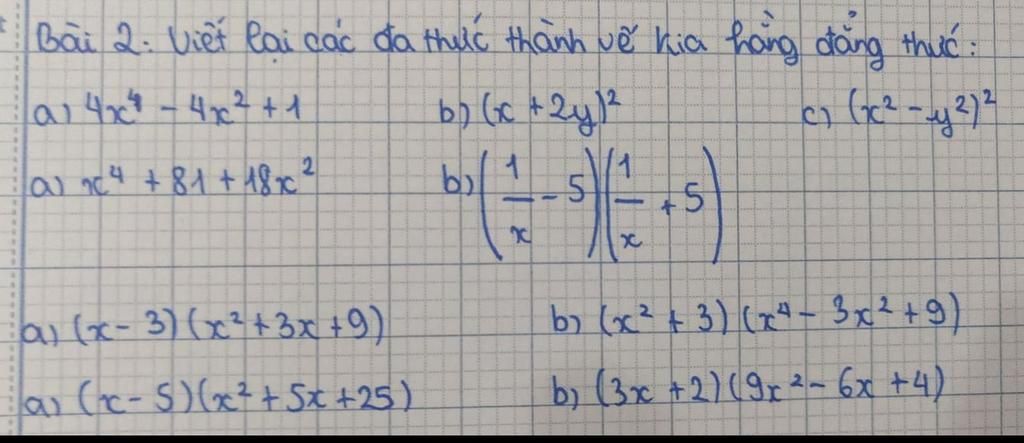 Bài 2: Viết lại các đa thức thành vế kia hằng đẳng thức:
a) 4x⁴ - 4x² + 1 b) (x + 2y)² c) (x² - y²)²
a) x⁴ + 81 + 18x² b) (1/x - 5)(1/x + 5)
a) (x - 3)(x² + 3x + 9) b) (x² + 3)(x⁴ - 3x² + 9)
a) (x - 5)(x² + 5x + 25) b) (3x + 2)(9x² - 6x + 4)